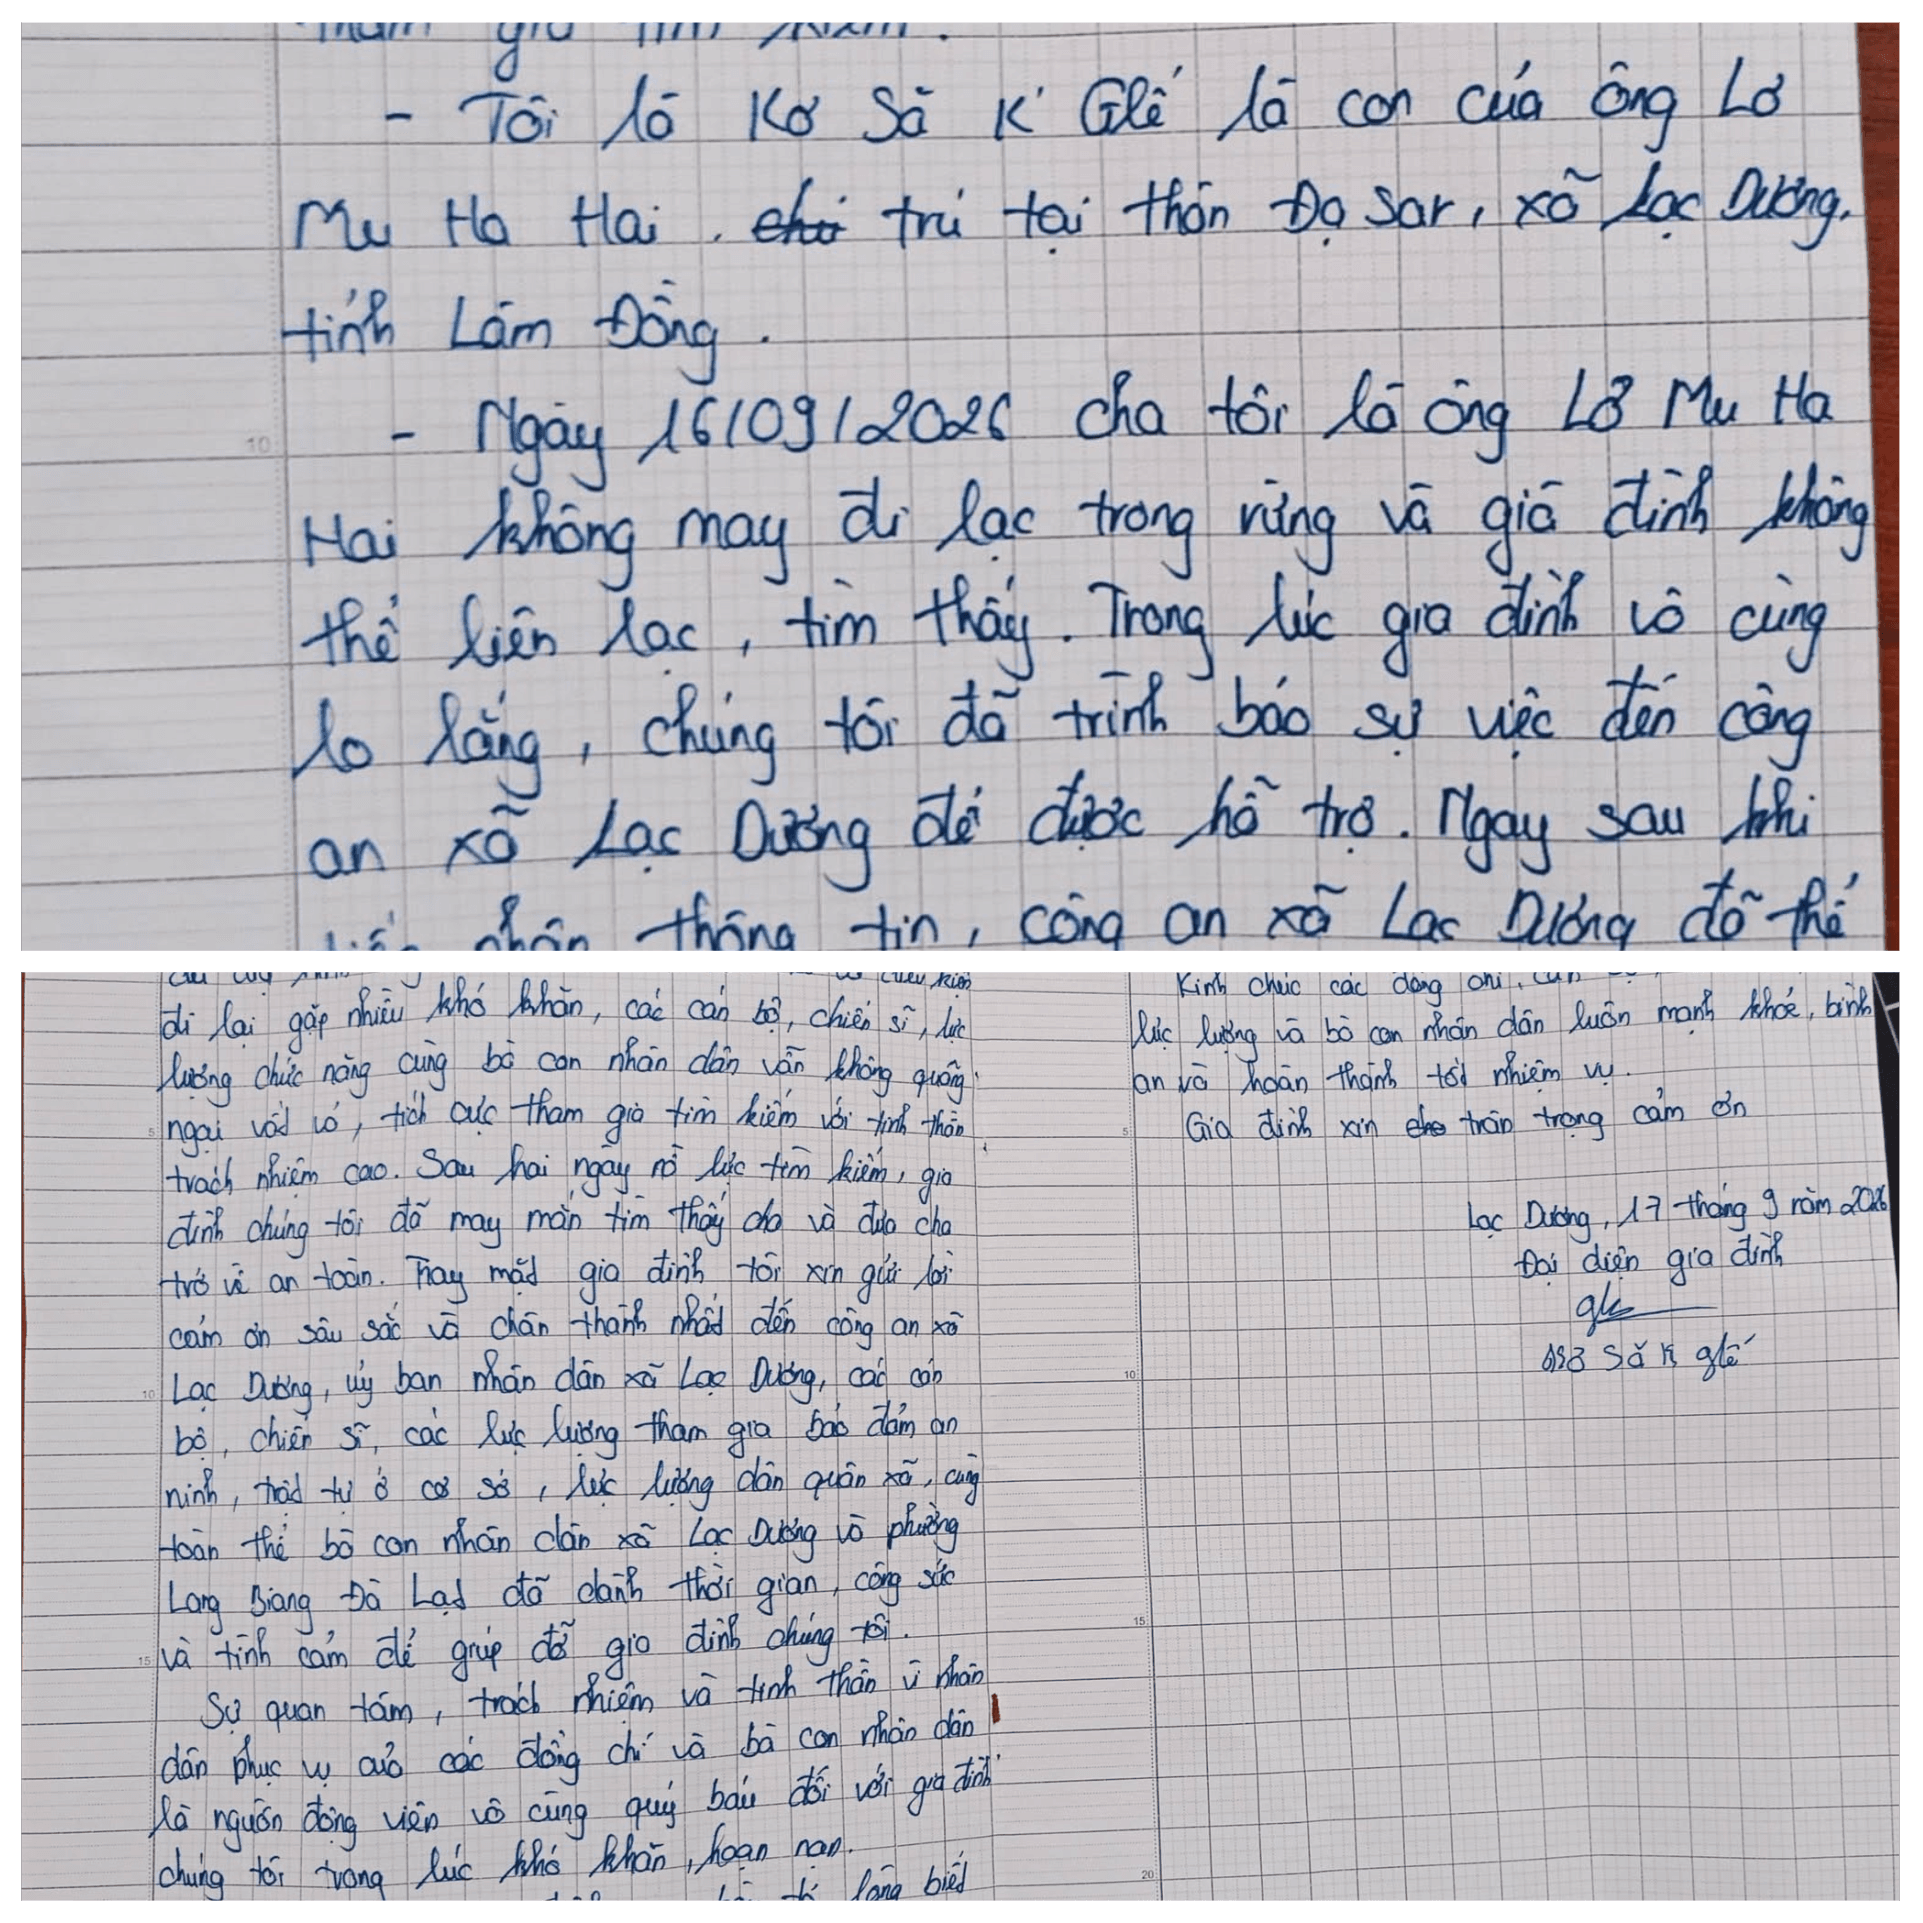 tham gia tìm kiếm.
- Tôi là Kơ Să K' Glế là con của ông Lơ
Mu Ha Hai. chú trú tại thôn Đạ Sar, xã Lạc Dương,
tỉnh Lâm Đồng.
- Ngày 16/09/2026 cha tôi là ông Lơ Mu Ha
Hai không may đi lạc trong rừng và giã đình không
thể liên lạc, tìm thấy. Trong lúc gia đình vô cùng
lo lắng, chúng tôi đã trình báo sự việc đến công
an xã Lạc Dương để được hỗ trợ. Ngay sau khi
nhận thông tin, công an xã Lạc Dương đã thể
di lại gặp nhiều khó khăn, các cán bộ, chiến sĩ, lực
lượng chức năng cùng bà con nhân dân vẫn không quãng
ngại vất vả, tích cực tham gia tìm kiếm với tinh thần
trách nhiệm cao. Sau hai ngày nỗ lực tìm kiếm, gia
đình chúng tôi đã may mắn tìm thấy cha và đưa cha
trở về an toàn. Thay mặt gia đình tôi xin gửi lời
cảm ơn sâu sắc và chân thành nhất đến công an xã
Lạc Dương, ủy ban nhân dân xã Lạc Dương, các cán
bộ, chiến sĩ, các lực lượng tham gia bảo đảm an
ninh, trật tự ở cơ sở, lực lượng dân quân xã, cùng
toàn thể bà con nhân dân xã Lạc Dương và phường
Lang Biang Đà Lạt đã dành thời gian, công sức
và tình cảm để giúp đỡ gia đình chúng tôi.
Sự quan tâm, trách nhiệm và tinh thần vì nhân
dân phục vụ của các đồng chí và bà con nhân dân
là nguồn động viên vô cùng quý báu đối với gia đình
chúng tôi trong lúc khó khăn, hoạn nạn.
lòng biết
Kính chúc các đồng chí, cán
lực lượng và bà con nhân dân luôn mạnh khỏe, bình
an và hoàn thành tốt nhiệm vụ.
Gia đình xin cho trân trọng cảm ơn
Lạc Dương, 17 tháng 9 năm 2026
Đại diện gia đình
Kơ Să K glế